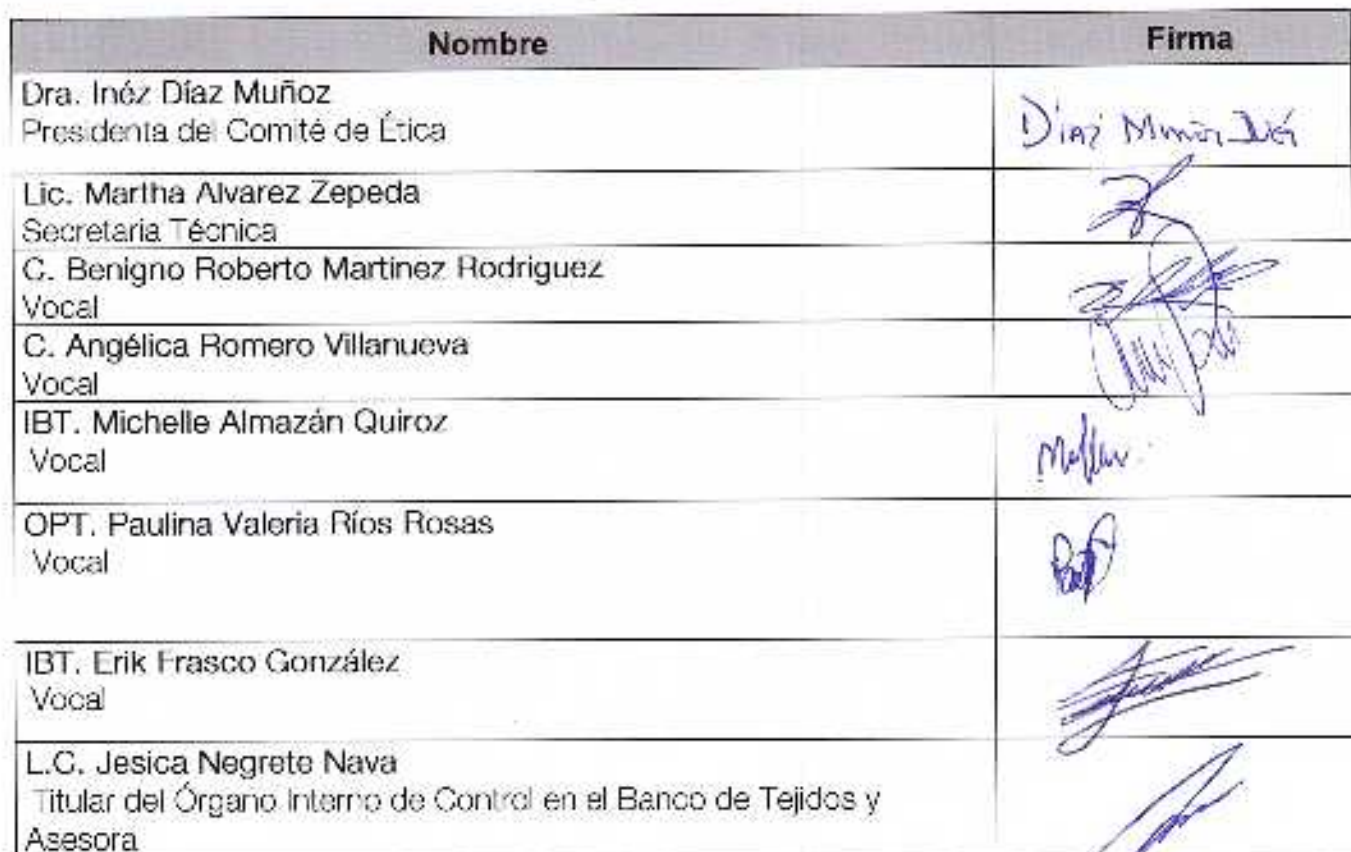 Nombre Firma
Dra. Inéz Díaz Muñoz
Presidenta del Comité de Ética
Díaz Muñoz Inéz
Lic. Martha Alvarez Zepeda
Secretaria Técnica
C. Benigno Roberto Martínez Rodriguez
Vocal
C. Angélica Romero Villanueva
Vocal
IBT. Michelle Almazán Quiroz
Vocal
OPT. Paulina Valeria Ríos Rosas
Vocal
IBT. Erik Frasco González
Vocal
L.C. Jesica Negrete Nava
Titular del Órgano Interno de Control en el Banco de Tejidos y
Asesora